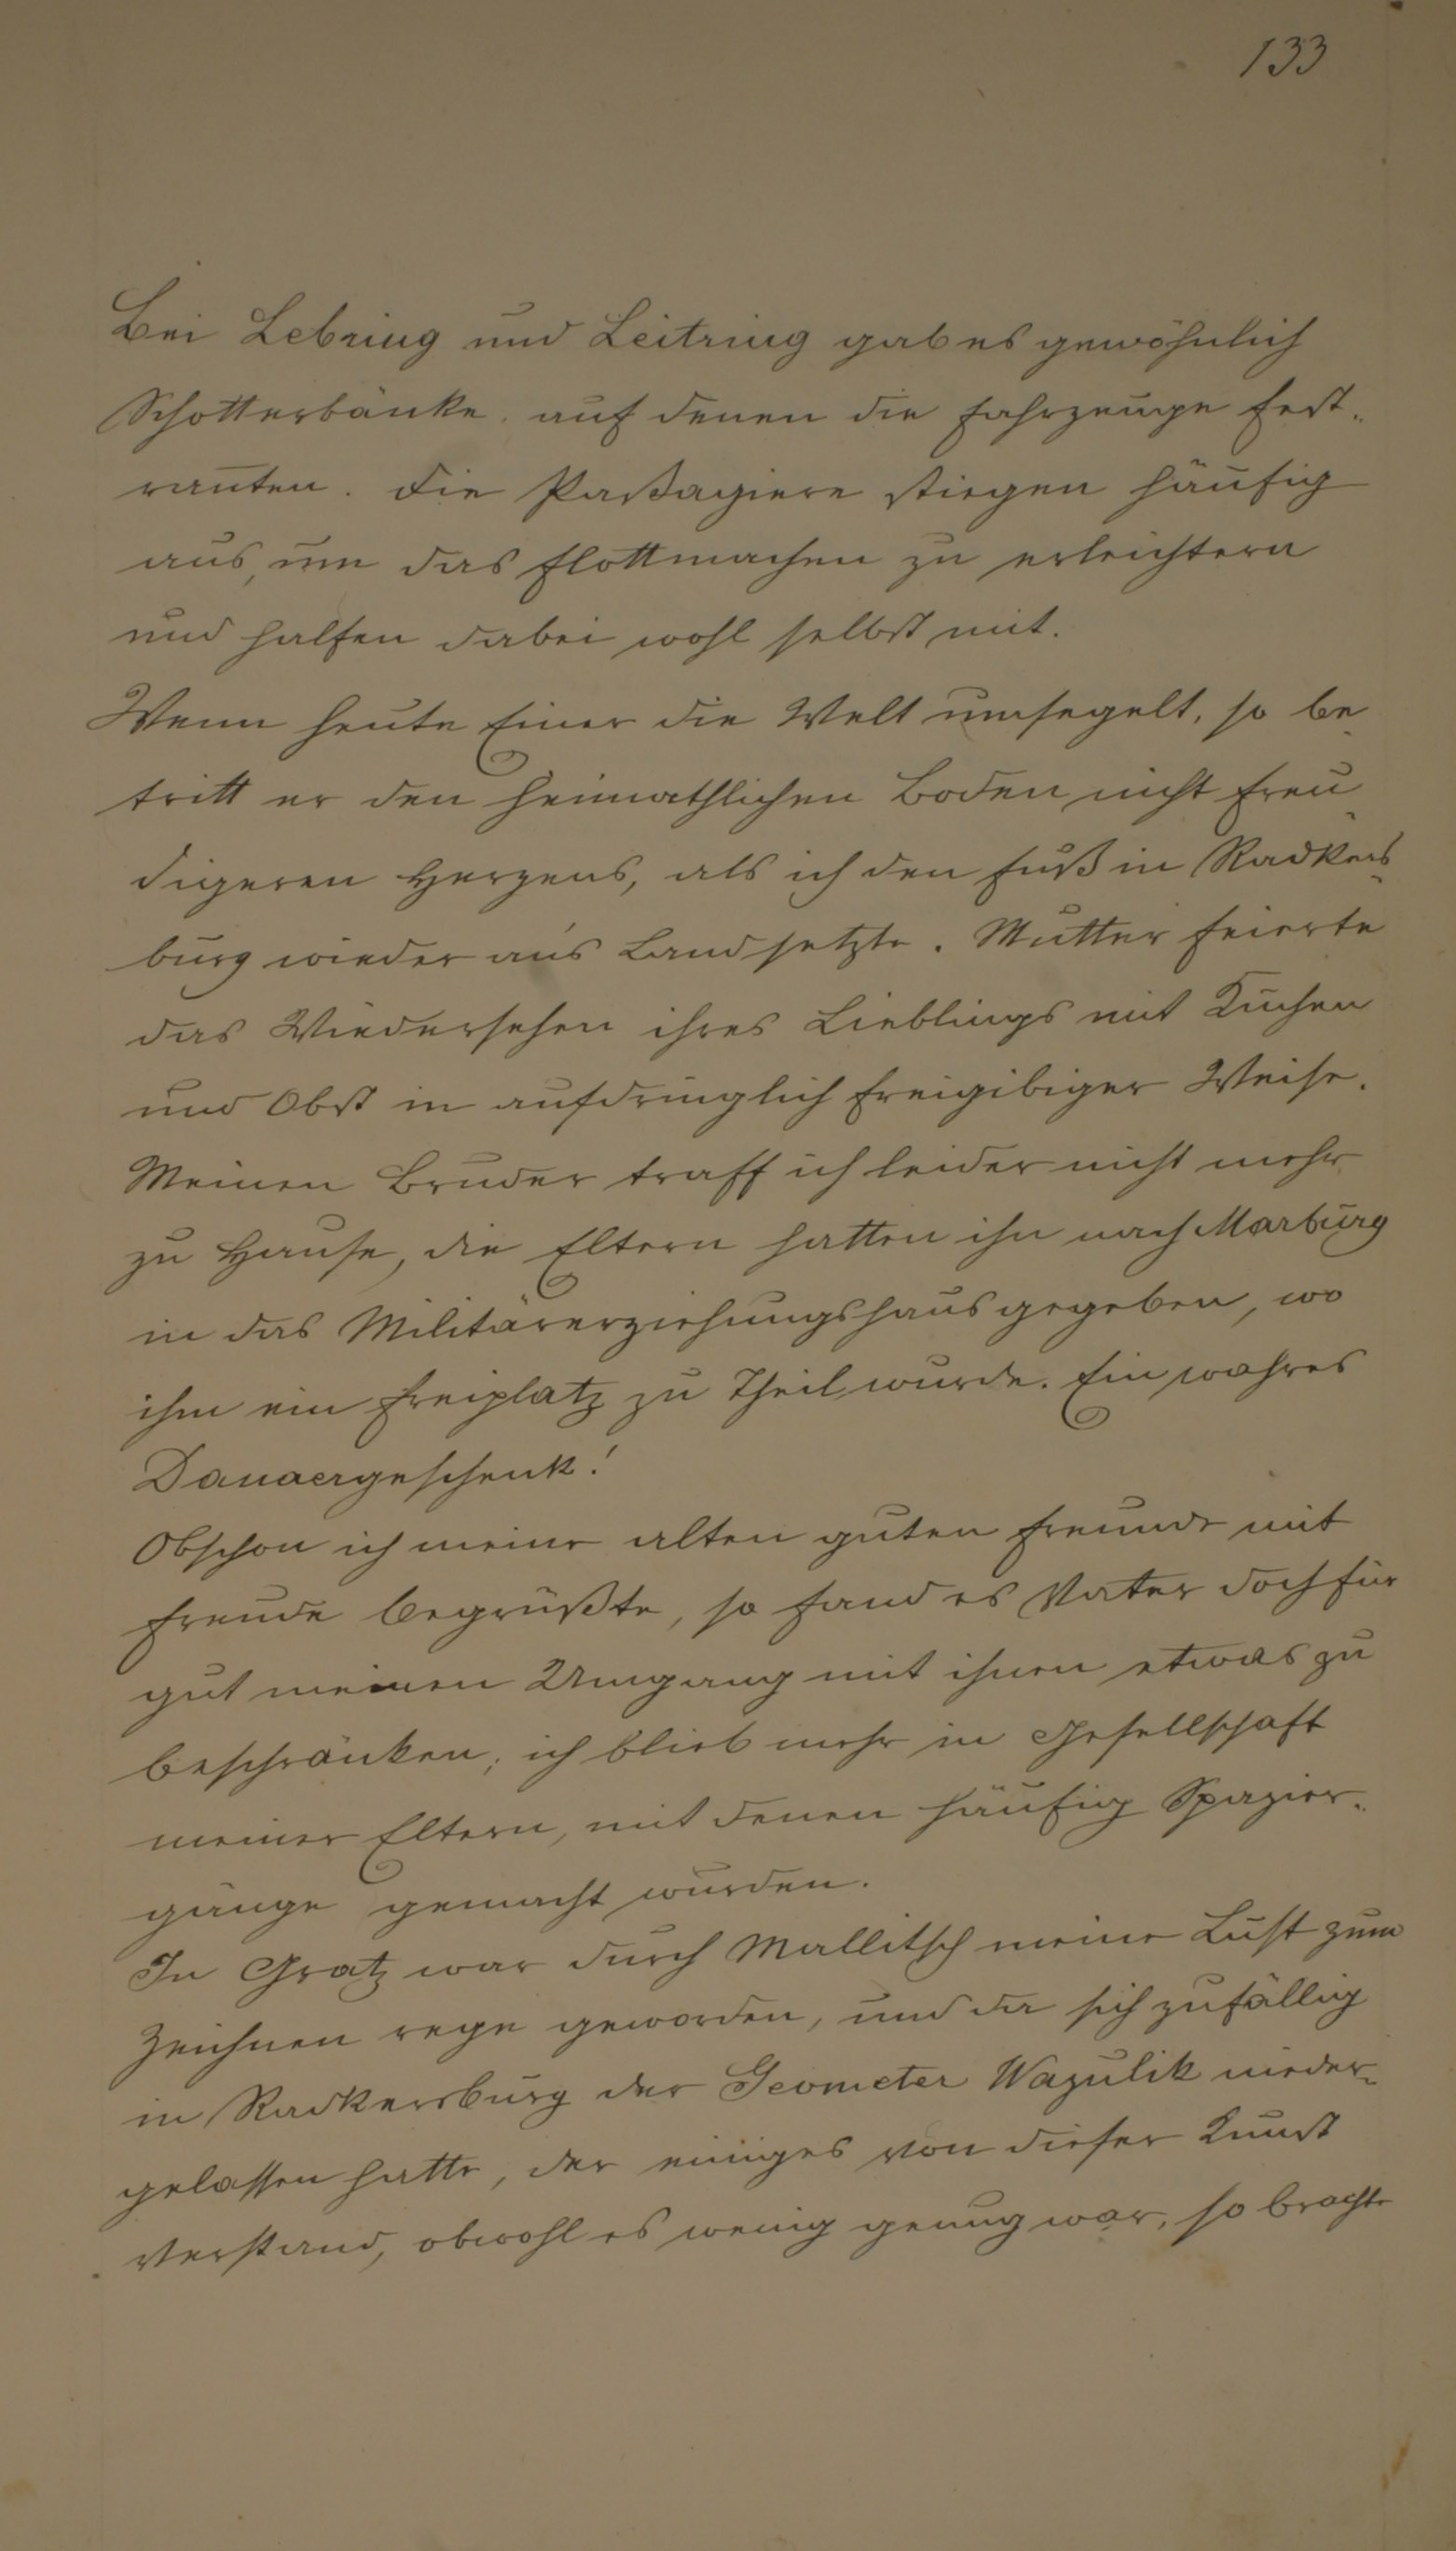 133
Bei Lebring und Leitring gab es gewöhnlich
Schotterbänke, auf denen die Fahrzeuge fest-
rañten. Die Paßagiere stiegen häufig
aus, um das Flottmachen zu erleichtern
und halfen dabei wohl selbst mit.
Wenn heute Einer die Welt umsegelt, so be-
tritt er den heimathlichen Boden nicht freu-
digeren Herzens, als ich den Fuß in Radkers-
burg wieder an's Land setzte. Mutter feierte
das Wiedersehen ihres Lieblings mit Kuchen
und Obst in aufdringlich freigibiger Weise.
Meinen Bruder traff ich leider nicht mehr
zu Hause, die Eltern hatten ihn nach Marburg
in das Militärerziehungshaus gegeben, wo
ihm ein Freiplatz zu Theil wurde. Ein wahres
Danaergeschenk!
Obschon ich meine alten guten Freunde mit
Freude begrüßte, so fand es Vater doch für
gut meinen Umgang mit ihnen etwas zu
beschränken; ich blieb mehr in Gesellschaft
meiner Eltern, mit denen häufig Spazier-
gänge gemacht wurden.
In Gratz war durch Mallitsch meine Lust zum
Zeichnen rege geworden, und da sich zufällig
in Radkersburg der Geometer Wazulik nieder-
gelassen hatte, der einiges von dieser Kunst
verstand, obwohl es wenig genug war, so brachte